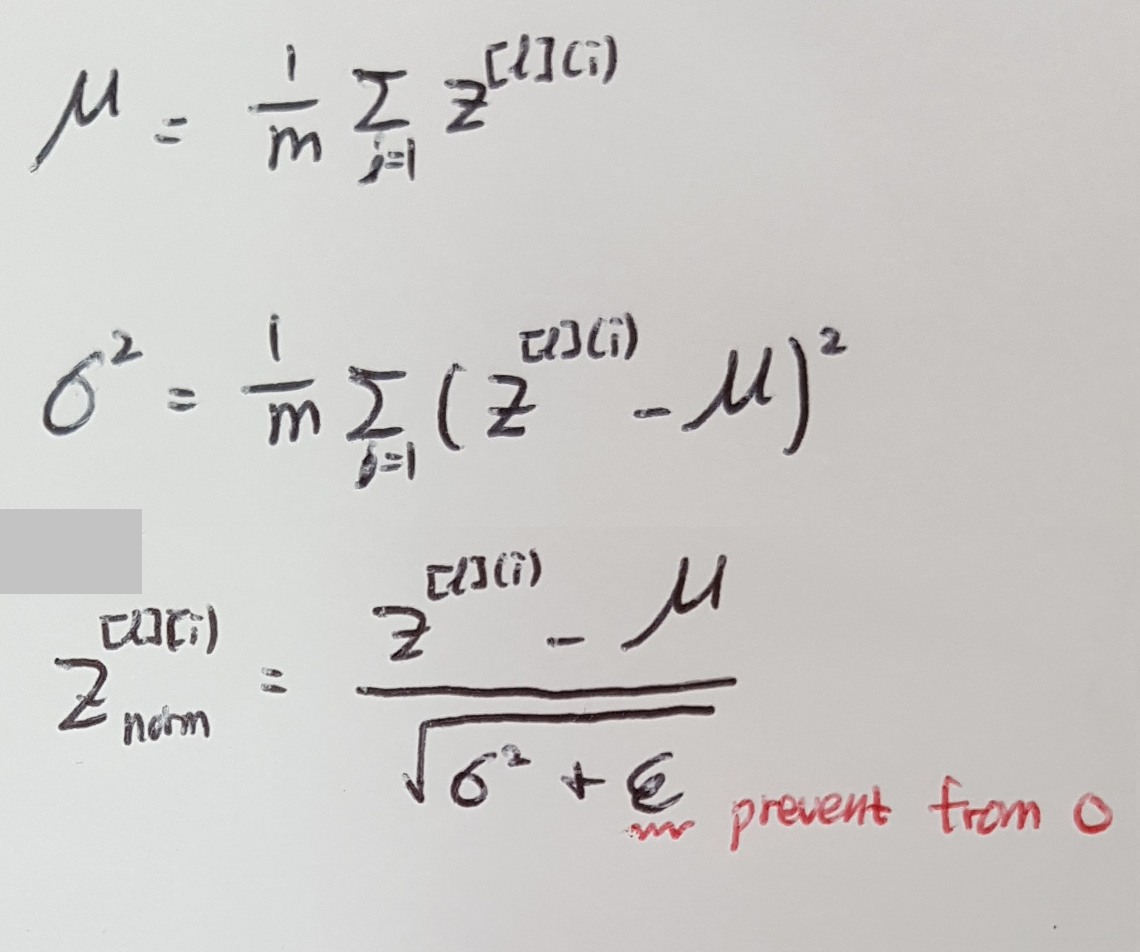 μ = 1/m Σ_{i=1} z^{[l](i)}
σ² = 1/m Σ_{i=1} (z^{[l](i)} - μ)²
z_{norm}^{[l](i)} = (z^{[l](i)} - μ) / √(σ² + ε) prevent from 0